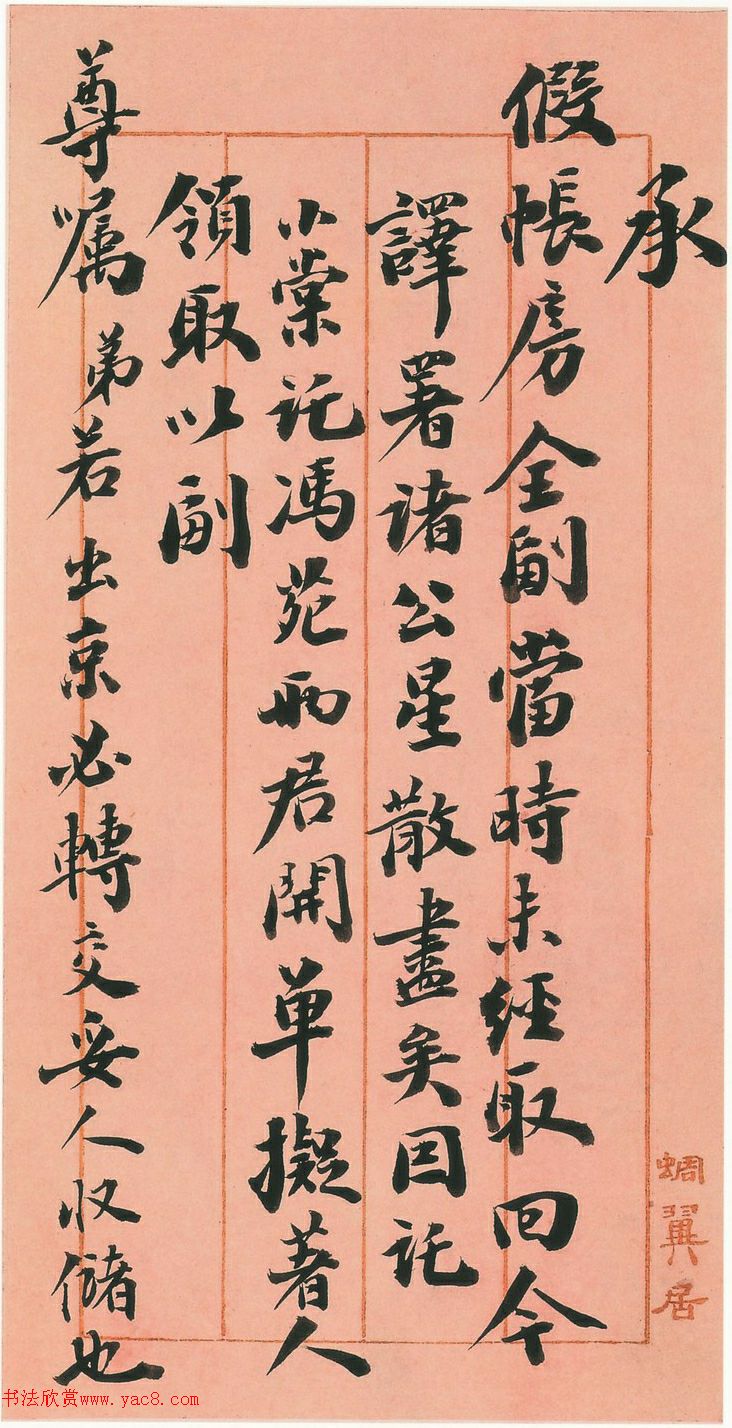 承
假帳房全副當時未經取回今
譯署諸公星散盡矣因託
小棠託馮苑兩君開单擬著人
領取以副
尊嘱弟若出京必轉交妥人收儲也
蜩翼居
书法欣赏www.yac8.com